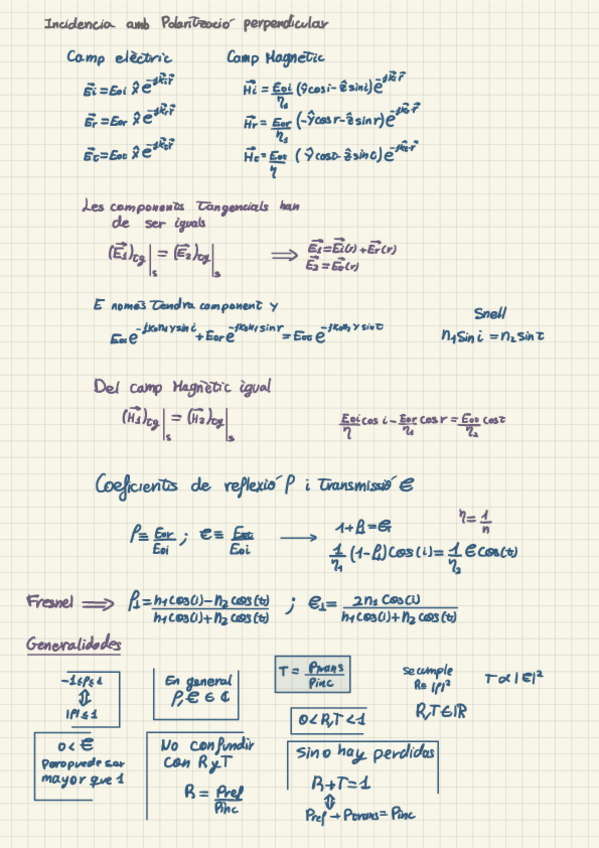 Incidencia amb Polarització perpendicular
Camp elèctric
Camp Magnetic
E⃗i = Eoi x̂ e^-jk⃗i r⃗
H⃗i = Eoi/η1 (ŷcosi - ẑsini) e^-jk⃗i r⃗
E⃗r = Eor x̂ e^-jk⃗r r⃗
H⃗r = Eor/η1 (-ŷcosr - ẑsinr) e^-jk⃗r r⃗
E⃗t = Eot x̂ e^-jk⃗t r⃗
H⃗t = Eot/η (ŷcost - ẑsint) e^-jk⃗t r⃗
Les components tangencials han
de ser iguals
(E⃗1)tg|s = (E⃗2)tg|s ⟹ E⃗1 = E⃗i(r) + E⃗r(r)
E⃗2 = E⃗t(r)
E només tendra component Y
Snell
Eoi e^-jk0n1 y sin i + Eor e^-jk0n1 y sin r = Eot e^-jk0n2 y sin t
n1 sin i = n2 sin t
Del camp Magnètic igual
(H⃗1)tg|s = (H⃗2)tg|s
Eoi/η cos i - Eor/η1 cos r = Eot/η2 cos t
Coeficients de reflexió ρ i transmissió τ
ρ ≡ Eor/Eoi ; τ ≡ Eot/Eoi ⟶ 1 + ρ = τ
η = 1/n
1/η1 (1-ρ) cos(i) = 1/η2 τ cos(t)
Fresnel ⟹ ρ⊥ = n1 cos(i) - n2 cos(t) / n1 cos(i) + n2 cos(t) ; τ⊥ = 2n1 cos(i) / n1 cos(i) + n2 cos(t)
Generalidades
-1≤ρ≤1
⇕
|ρ| ≤ 1
En general
ρ, τ ∈ ℂ
T = Ptrans/Pinc
0 < R,T < 1
se cumple
R = |ρ|²
T ∝ |τ|²
R,T ∈ ℝ
0 < τ
Pero puede ser
mayor que 1
No confundir
con R y T
R = Pref/Pinc
Si no hay perdidas
R + T = 1
⇕
Pref + Ptrans = Pinc